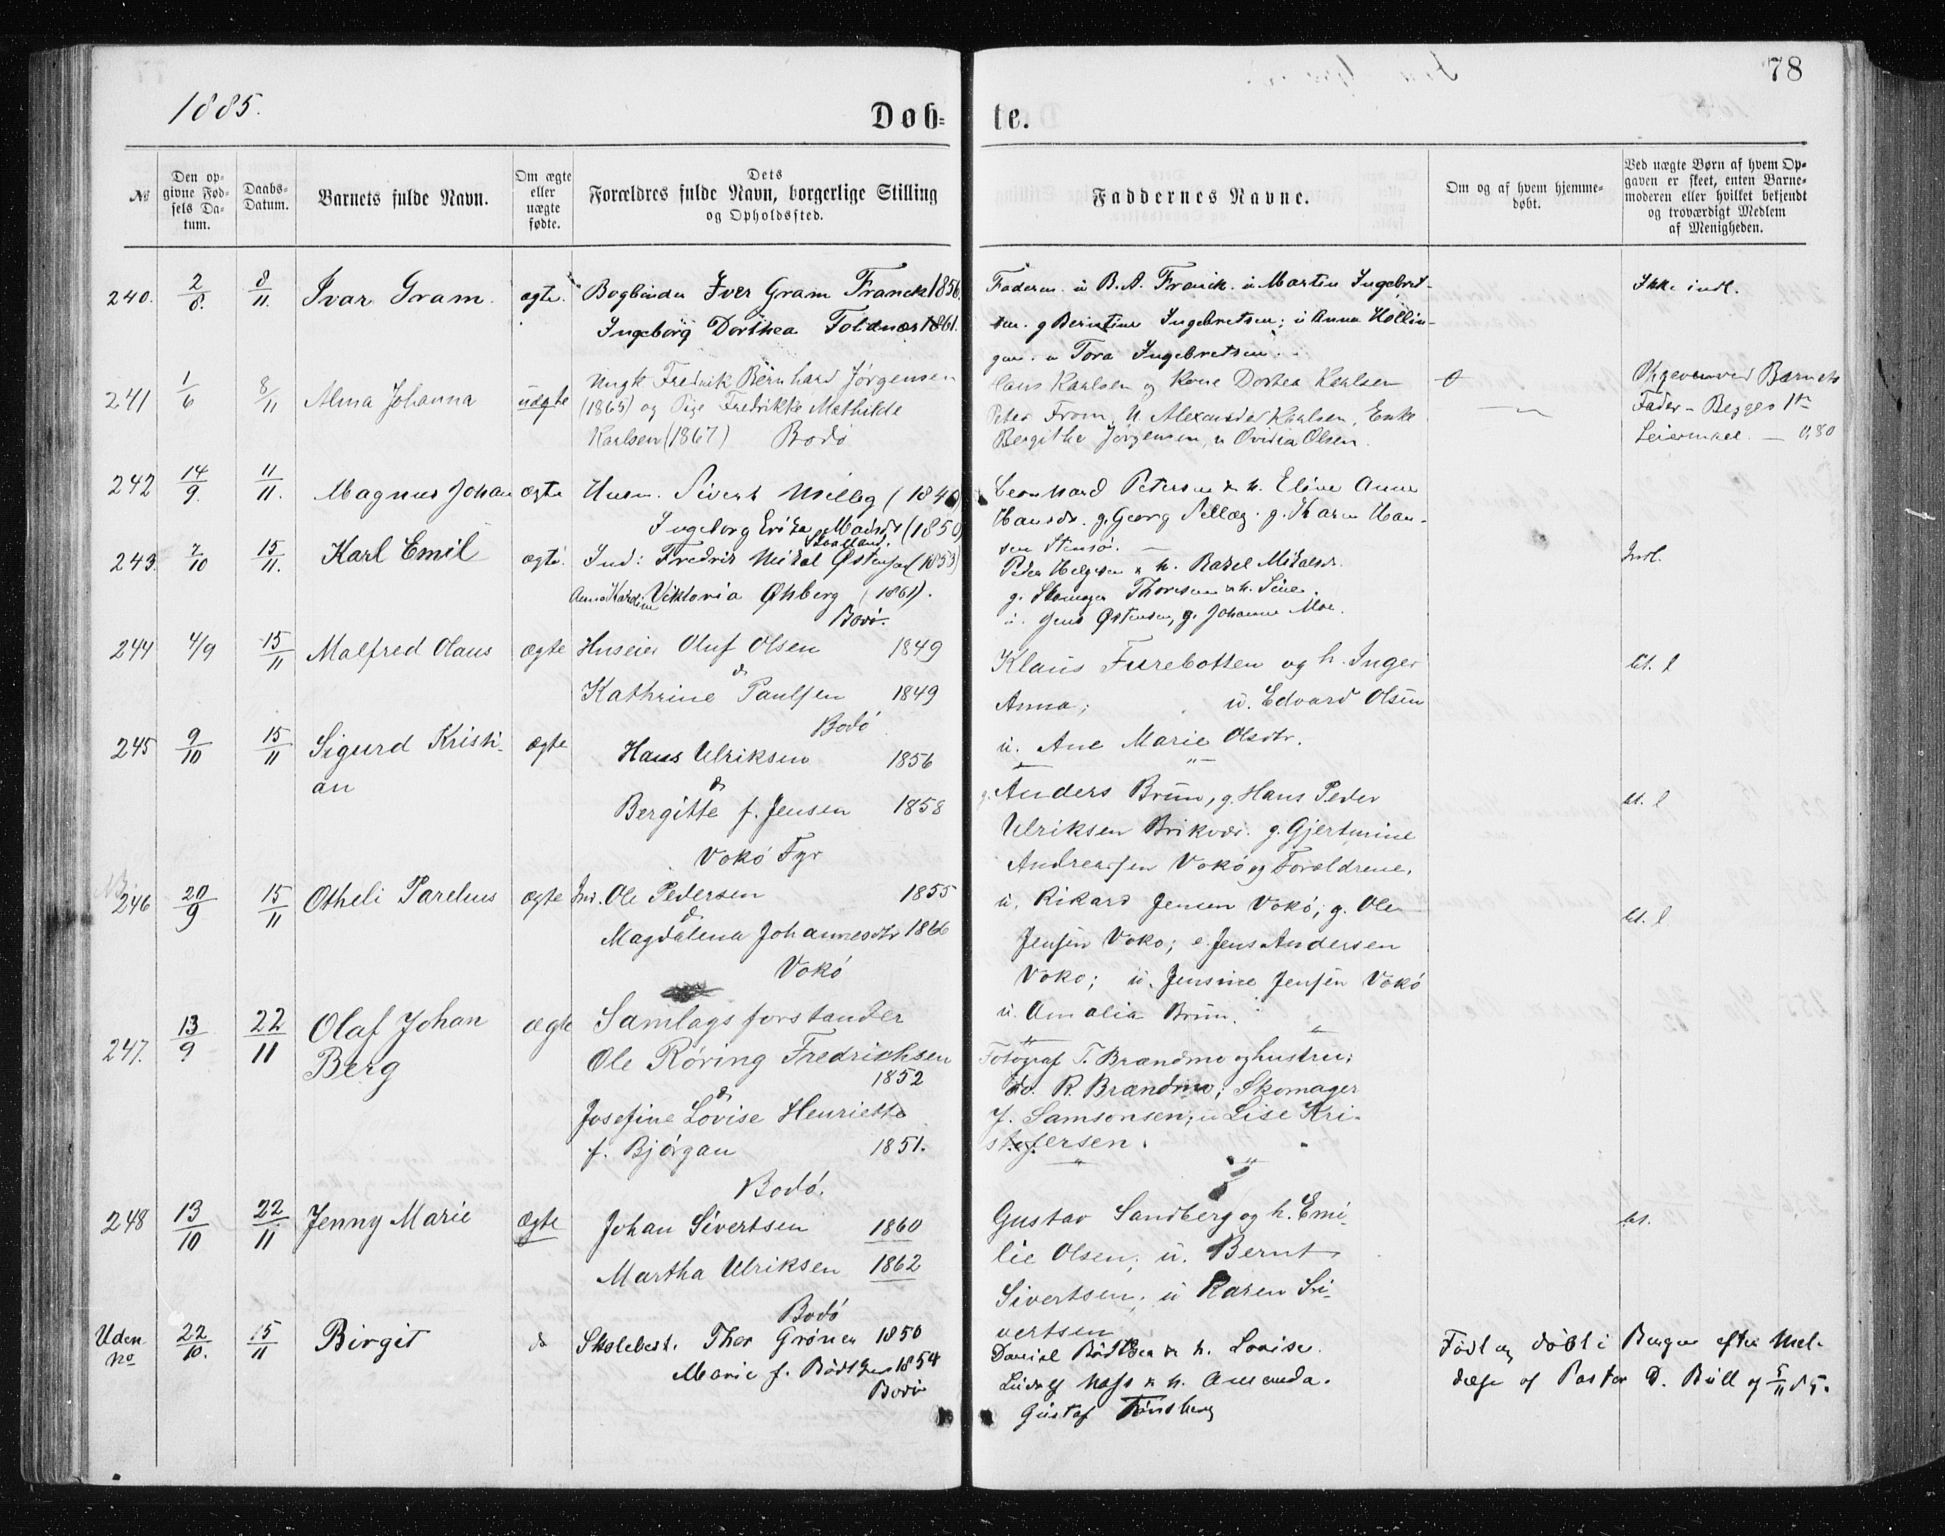 78
1885.
Døb=
te.
No
Den opgivne Fødsels Datum.
Daabs-Datum.
Barnets fulde Navn.
Om ægte eller uægte fødte.
Dets Forældres fulde Navn, borgerlige Stilling og Opholdssted.
Faddernes Navne.
Om og af hvem hjemmedøbt.
Ved uægte Børn af hvem Opgaven er skeet, enten Barnemoderen eller hvilket bekjendt og troværdigt Medlem af Menigheden.
240. 2/8. 8/11 Ivar Gram. ægte. Bogbinder Iver Gram Franck 1856.
Ingeborg Dorthea Toldnæs 1861.
Faderen. u B. A. Franck. u Martin Ingebret-
sen. g Berntine Ingebretsen; u Anna Hollin-
gen. u Tora Ingebretsen.
Ikke indl.
241 1/6 8/11 Alma Johanna uægte Ungk Fredrik Bernhard Jørgensen
(1865) og Pige Fredrikke Mathilde
Karlsen (1867) Bodø
Hans Karlsen og Kone Dortea Karlsen
Peter From, U Alexander Karlsen, Enke
Bergithe Jørgensen, u Ovidia Olsen.
Opgeven ved Barnets
Fader - Begges 1ste
Leiermaal. — 0,80
242 14/9. 11/11. Magnus Johan ægte Husm. Sivert Uilleg (1840)
Ingeborg Erika Madsdr (1850)
Leonhard Petersen & h. Eline Anna
Hansdr. g. Georg Selleg. g. Karen Han-
sen Stensø.
243. 7/10 15/11. Karl Emil ægte. Ind: Fredrik Mikal Østensen (1853)
Anna Karoline Viktoria Øhberg (1861).
Bodø.
Peder Helgesen & h. Rakel Mikalsdr.
g. Skomager Thoresen & h. Sine.
u. Jens Østensen, g. Johanna Moe.
Indl.
244 4/9 15/11 Malfred Olaus ægte Huseier Oluf Olsen 1849
&
Kathrine Paulsen 1849
Bodø
Klaus Furebotten og h. Inger
Anna; u. Edvard Olsen
u. Ane Marie Olsdtr.
bt. l
245 9/10 15/11 Sigurd Kristi-
an
ægte Hans Ulriksen 1856
&
Bergitte f. Jensen 1858
Vokø Fyr
g. Anders Brun, g. Hans Peder
Ulriksen Brikvær. g. Gjertmine
Andreassen Vokø og Forældrene.
bt. l
246 20/9 15/11 Otheli Parelius ægte Ind. Ole Pedersen 1855
&
Magdalena Johannesdtr 1866
Vokø
u. Rikard Jensen Vokø; g. Ole
Jensen Vokø; e. Jens Andersen
Vokø; u. Jensine Jensen Vokø
u. Amalia Brun.
bt. l
247. 13/9 22/11 Olaf Johan
Berg
ægte Samlagsforstander
Ole Røring Fredriksen
1852
&
Josefine Lovise Henriette
f. Bjørgan 1851.
Bodø.
Fotograf T. Brandmo og hustru;
do. R. Brandmo; Skomager
J. Samsonsen; u Lise Kri-
stofersen.
248 13/10 22/11 Jenny Marie ægte Johan Sivertsen 1860
Martha Ulriksen 1862
Bodø
Gustav Sandberg og h. Emi-
lie Olsen; u. Bernt
Sivertsen; u Karen Si-
vertsen
bt.
Uden
No
22/10. 15/11 Birgit do Skolebest. Thor Grøner 1850
Marie f. Bødtker 1854
Bodø
Daniel Bødtker & h. Lovise.
Ludvig Hass & h. Amanda.
Gustaf Tønsberg
Født og døbt i Bergen efter Mel-
delse af Pastor D. Bull af 5/11 85.